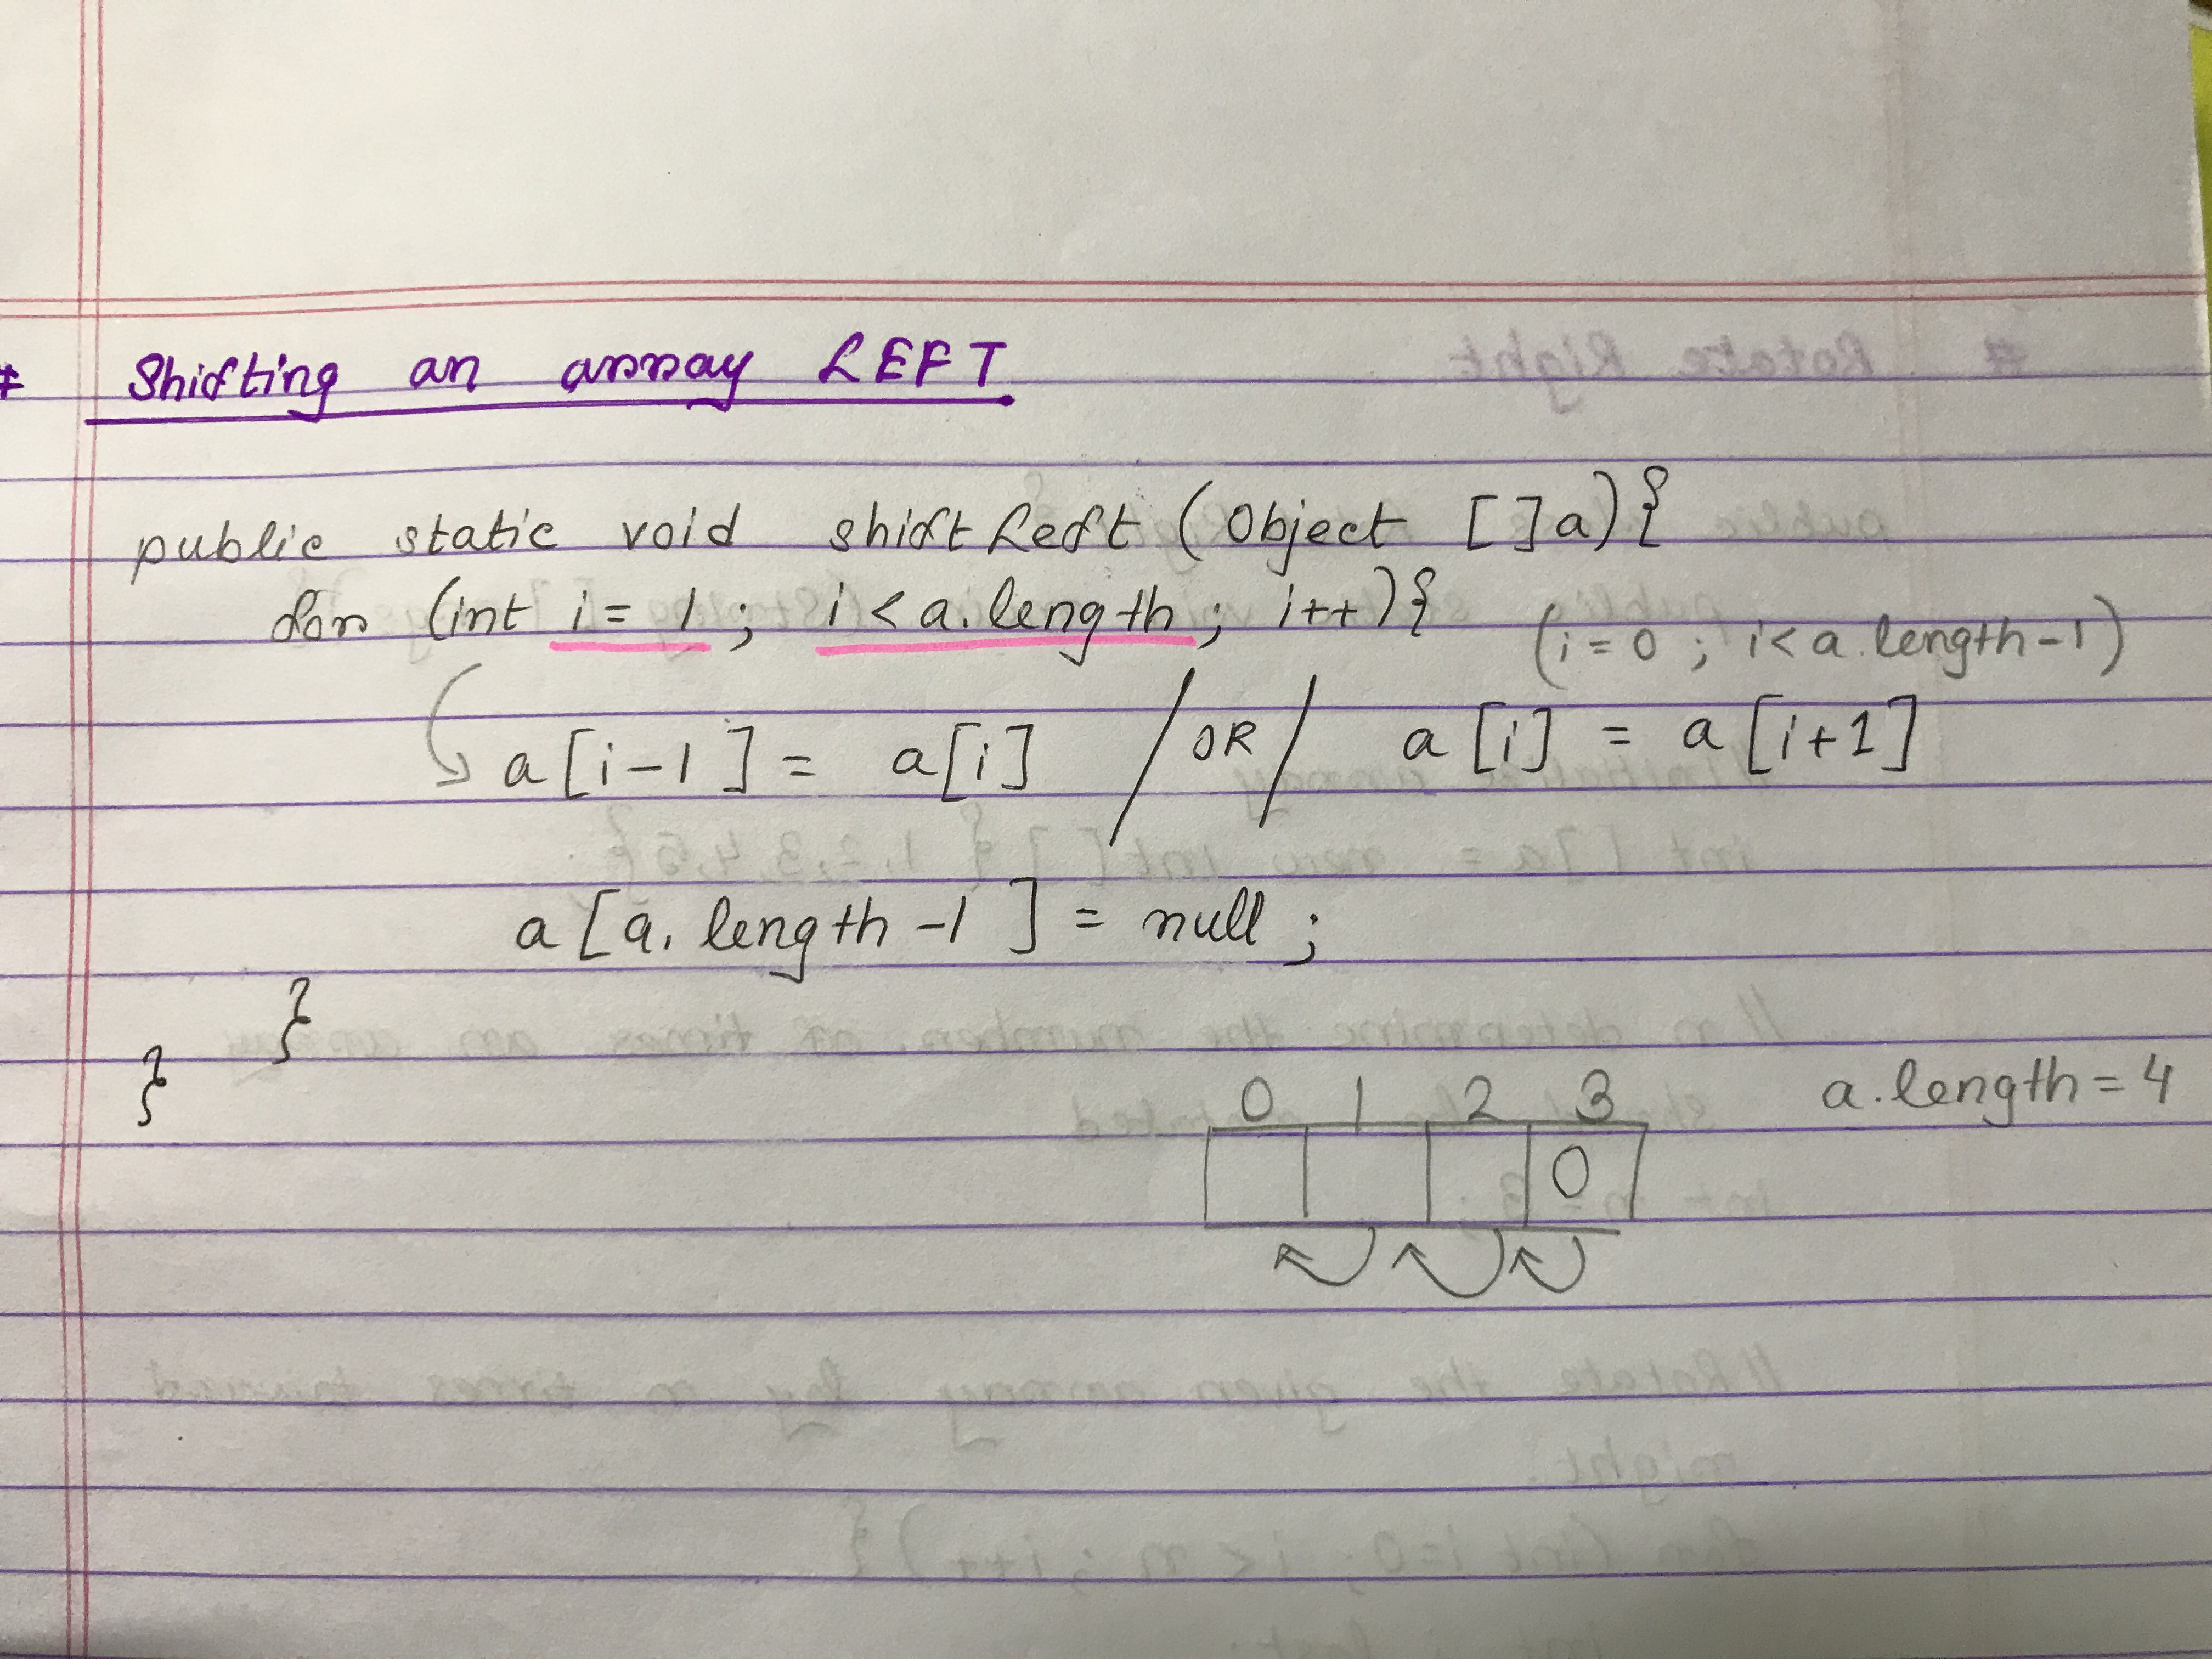 # Shifting an array LEFT
public static void shiftLeft (Object []a){
for (int i = 1 ; i < a.length ; i++){ (i = 0 ; i < a.length-1)
a[i-1] = a[i] / OR / a[i] = a[i+1]
a[a.length-1] = null ;
}
}
0 1 2 3 a.length = 4
0